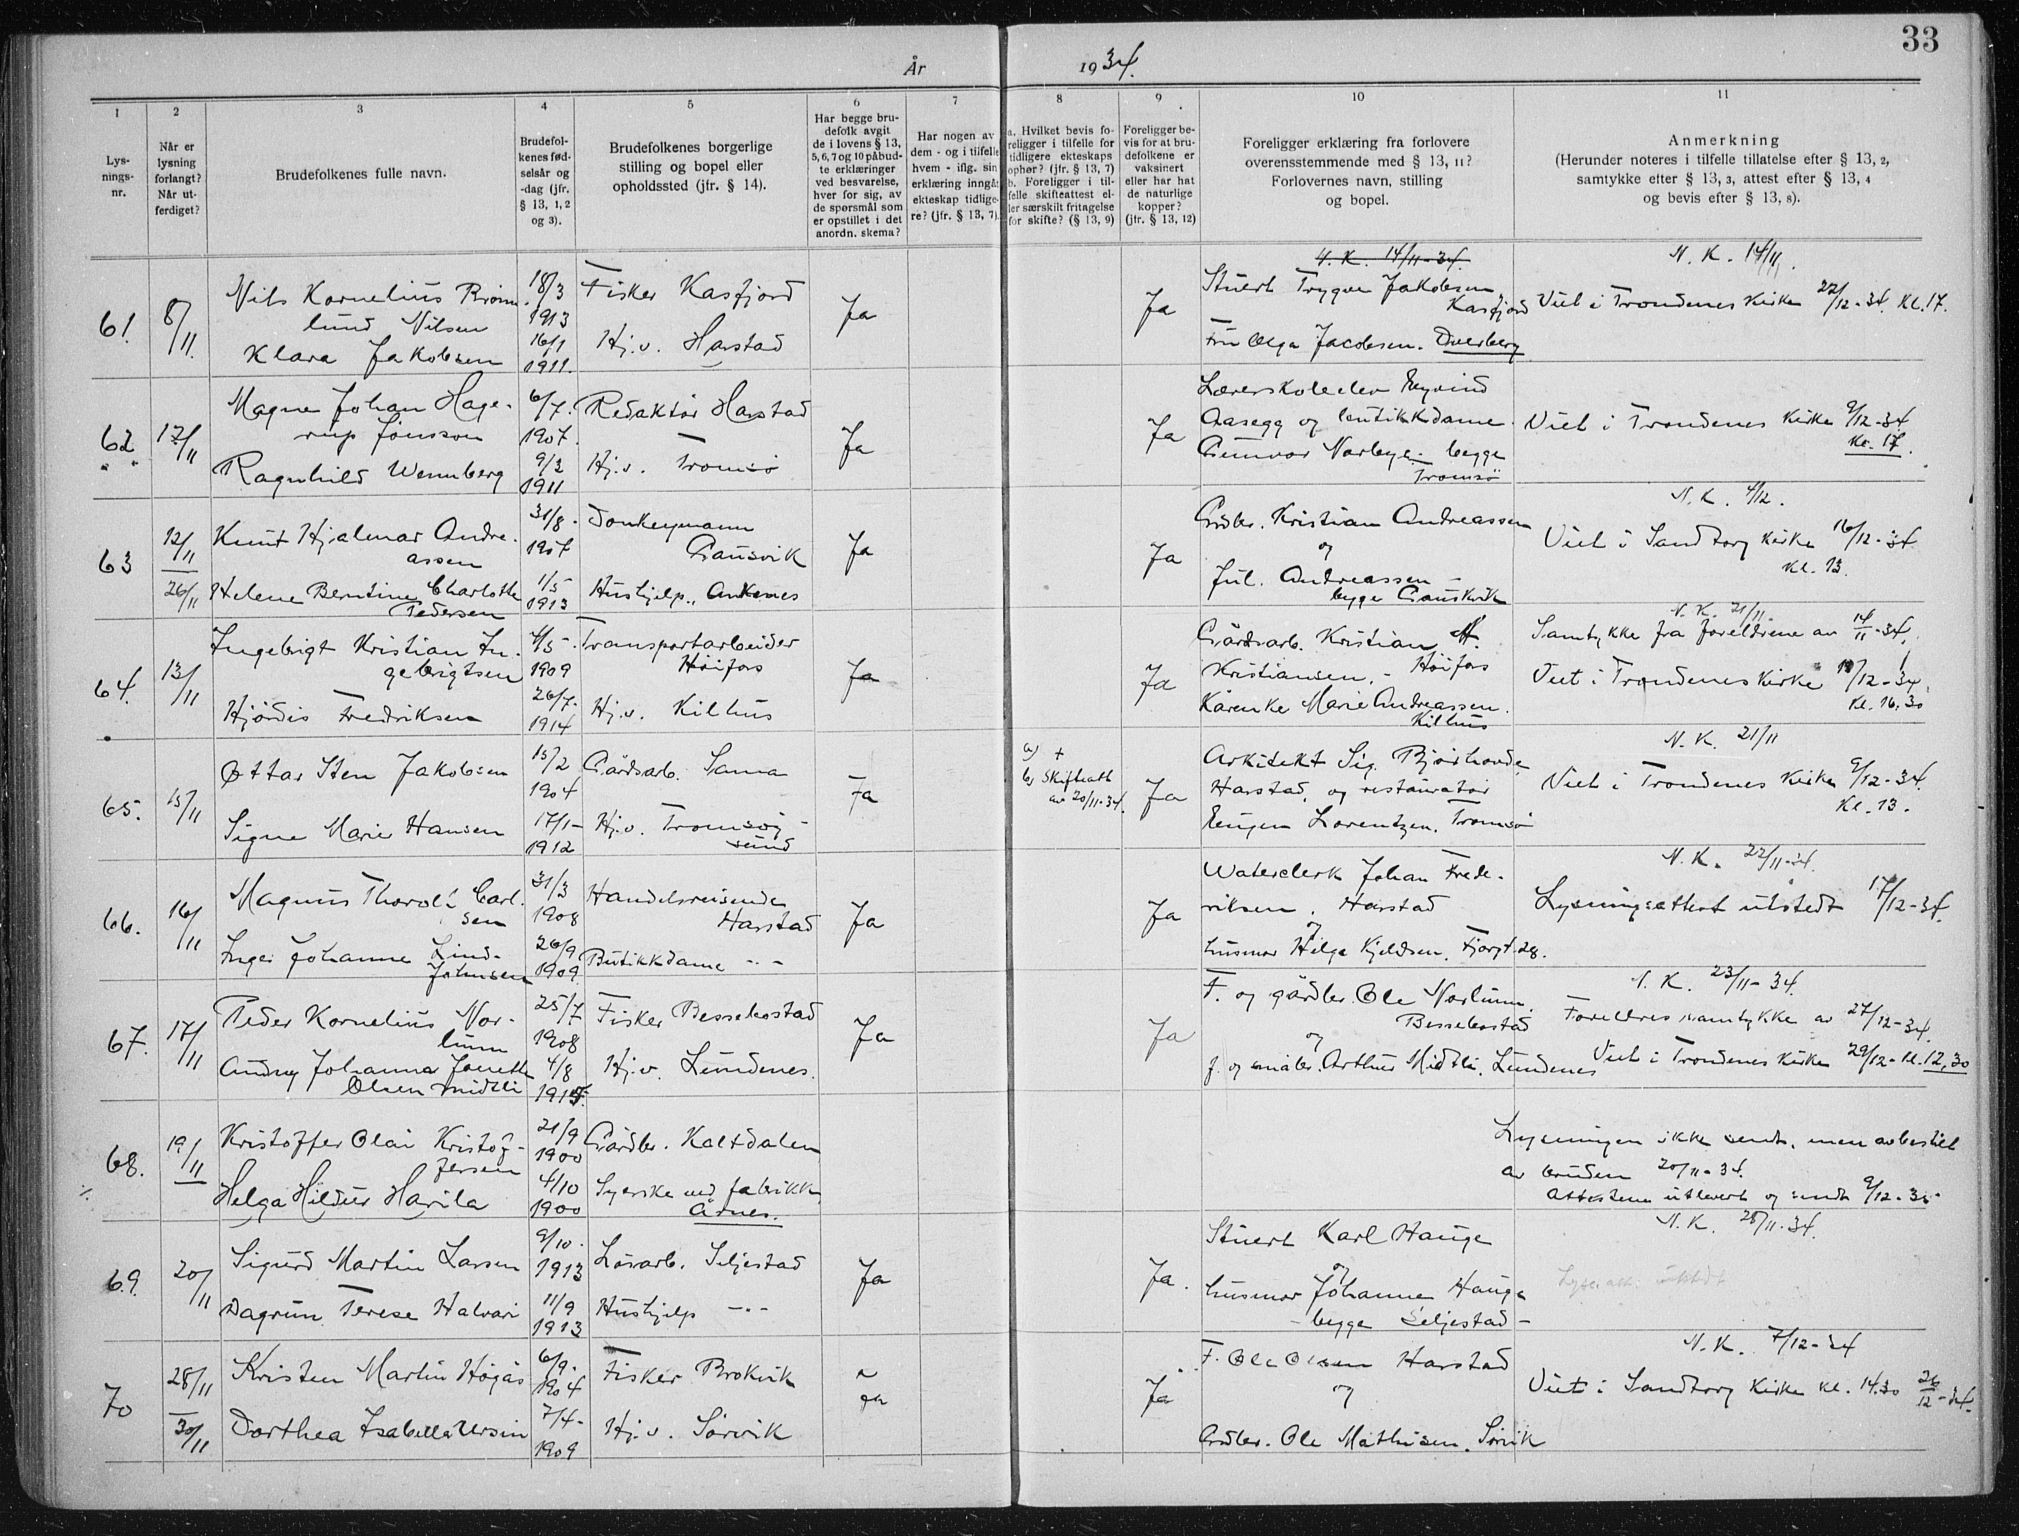 33
År 1934.
1 2 3 4 5 6 7 8 9 10 11
Lys-
nings-
nr.
Når er
lysning
forlangt?
Når ut-
ferdiget?
Brudefolkenes fulle navn.
Brudefol-
kenes fød-
selsår og
-dag (jfr.
§ 13, 1, 2
og 3).
Brudefolkenes borgerlige
stilling og bopel eller
opholdssted (jfr. § 14).
Har begge bru-
defolk avgit
de i lovens § 13,
5, 6, 7 og 10 påbud-
te erklæringer
ved besvarelse,
hver for sig, av
de spørsmål som
er opstillet i det
anordn. skema?
Har nogen av
dem - og i tilfelle
hvem - iflg. sin
erklæring inngåt
ekteskap tidlige-
re? (jfr. § 13, 7).
a. Hvilket bevis fo-
religger i tilfelle for
tidligere ekteskaps
ophør? (jfr. § 13, 7)
b. Foreligger i til-
felle skifteattest el-
ler særskilt fritagelse
for skifte? (§ 13, 9)
Foreligger be-
vis for at bru-
defolkene er
vaksinert
eller har hat
de naturlige
kopper?
(jfr. § 13, 12)
Foreligger erklæring fra forlovere
overensstemmende med § 13, 11?
Forlovernes navn, stilling
og bopel.
Anmerkning
(Herunder noteres i tilfelle tillatelse efter § 13, 2,
samtykke efter § 13, 3, attest efter § 13, 4
og bevis efter § 13, 8).
61. 8/11.
Nils Kornelius
lund Nilsen
Klara Jakobsen
18/3
1913
16/1
1911.
Fisker Kasfjord
Hj.v. Harstad
Ja
Ja
N. K. 14/11-34.
Stuert Trygve Jakobsen,
Kasfjord
Fru Olga Jacobsen. Dverberg
N. K. 14/11.
Viet i Trondenes Kirke 22/12-34. Kl. 17.
62 12/11
Magne Johan Hage-
rup Jonsson
Ragnhild Wennberg
6/7.
1907.
9/2
1911
Redaktør Harstad
Hj.v. Tromsø
Ja
Ja
Lærerskoleelev Eyvind
Aasegg og butikkdame
Gunvor Norbye. begge
Tromsø
Viet i Trondenes Kirke 9/12-34
Kl. 17.
63 12/11
26/11
Knut Hjalmar Andre-
assen
Helene Berntine Charlotte
Pedersen
31/8.
1907
1/5
1913
Donkeymann
Gausvik
Hushjelp., Ankenes
Ja
Ja
Grdbr. Kristian Andreassen
og
Jul. Andreassen -
begge Gausvik
N. K. 4/12.
Viet i Sandtorg Kirke 16/12-34
Kl. 13.
64. 13/11
Ingebrigt Kristian In-
gebrigtsen
Hjördis Fredriksen
4/5-
1909
26/7.
1914
Transportarbeider
Høifors
Hj.v. Kilhus
Ja
Ja
Gårdsarb. Kristian
Kristiansen. - Høifors
Kårenke Marie Andreassen.
Kilhus
N. K. 21/11.
Samtykke fra foreldrene av 14/11-34.
Viet i Trondenes Kirke /12-34
Kl. 16,30
65. 15/11
Øttar Sten Jakobsen
Signe Marie Hansen
15/2
1904
17/1-
1912
Gårdsarb. Sama
Hj.v. Tromsøy-
sund
Ja
a) +
b) Skifteatt
av 20/11-34.
Ja
Arkitekt Sig. Bjørhovde,
Harstad, og restauratør
Eugen Lorentzen. Tromsø
N. K. 21/11
Viet i Trondenes Kirke 9/12-34.
Kl. 13.
66. 16/11
Magnus Thorolf Carl-
sen
Inger Johanne Lind-
Johnsen
31/3
1908
26/9
1909.
Handelsreisende
Harstad
Butikkdame -"-
Ja
Ja
Waterclerk Johan Frede-
riksen. Harstad
og
husmor Helga Kjeldsen. Fjorgt. 28.
N. K. 22/11-34.
Lysningsattest utstedt 17/12-34.
67. 17/11
Peder Kornelius Nor-
lum
Audny Johanna Janette
Olsen Midtli
25/7
1908
4/8
Fisker Bessebostad
Hj.v. Lundenes.
Ja
Ja
F. og gårdbr. Ole Norlum.
Bessebostad
og
f. og småbr. Arthur Midtli. Lundenes
N. K. 23/11-34.
Foreldres samtykke av 27/12-34.
Viet i Trondenes Kirke 29/12- Kl. 12,30
68. 19/11
Kristoffer Olai Kristof-
fersen
Helga Hildur Havila
21/9
1900
4/10
1900
Gårdbr. Kaltdalen
Syerske ved fabrikk
Årnes.
Lysningen ikke sendt, men avbestilt
av bruden 20/11-34.
Attestene utlevert og sendt 9/12-35
69. 20/11
Sigurd Martin Larsen
Dagrun Terese Halvari
9/10.
1913
11/9
1913
Løsarb. Seljestad
Hushjelp -"-
Ja
Ja.
Stuert Karl Hauge
og
husmor Johanne Hauge
- begge Seljestad -
N. K. 28/11-34.
Lysn.att. utstedt
70 28/11
30/11
Kristen Martin Høgås
Dorthea Isabella Ursin
6/9.
1904
7/4-
1909
Fisker Brokvik
Hj.v. Sørvik
Ja
Ja
F. Ole Olsen Harstad
og
Grdbr. Ole Mathisen. Sørvik
N. K. 7/12-34
Viet i Sandtorg Kirke kl. 14.30 26/12-34.